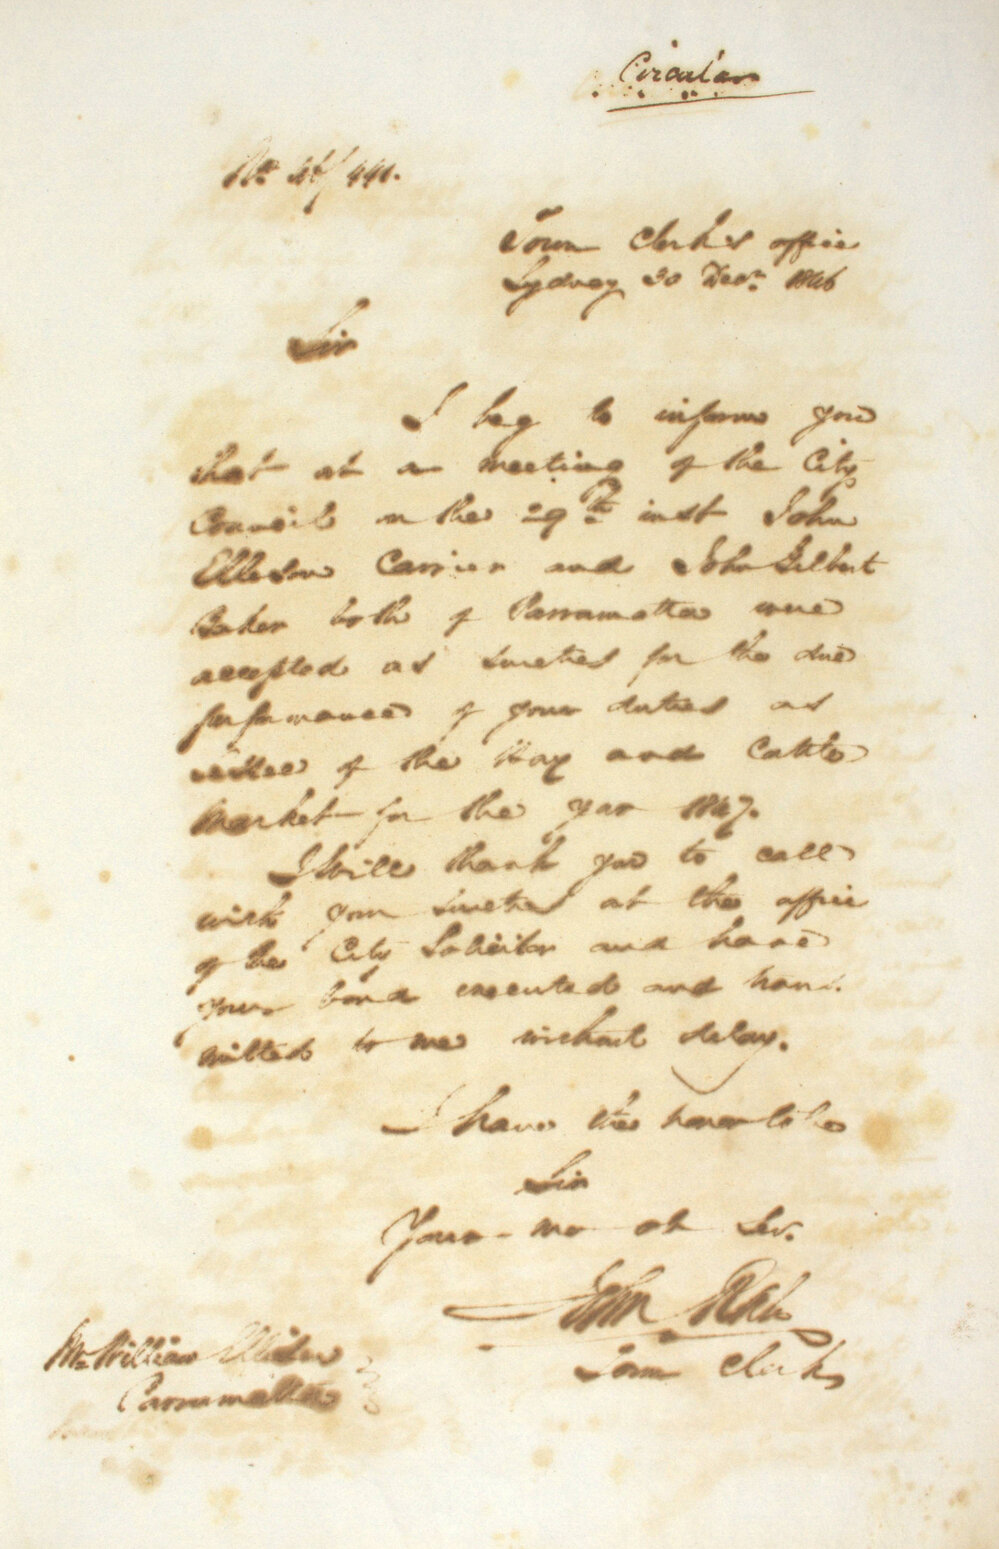 Circular
No. 46/441.
Town Clerk's office
Sydney 30 Decr. 1846
Sir
I beg to inform you
that at a meeting of the City
Council on the 29th inst John
Elleson Carrier and John Gilbert
Baker both of Parramatta were
accepted as sureties for the due
performance of your duties as
of the Hay and Cattle
Market for the year 1847.
I Will thank you to call
with your sureties at the office
of the City Solicitor and have
your bond executed and trans.
mitted to me without delay.
I have the honor to be
Sir
Your mo ob Ser.
John
Town Clerk
Mr. William
Parramatta